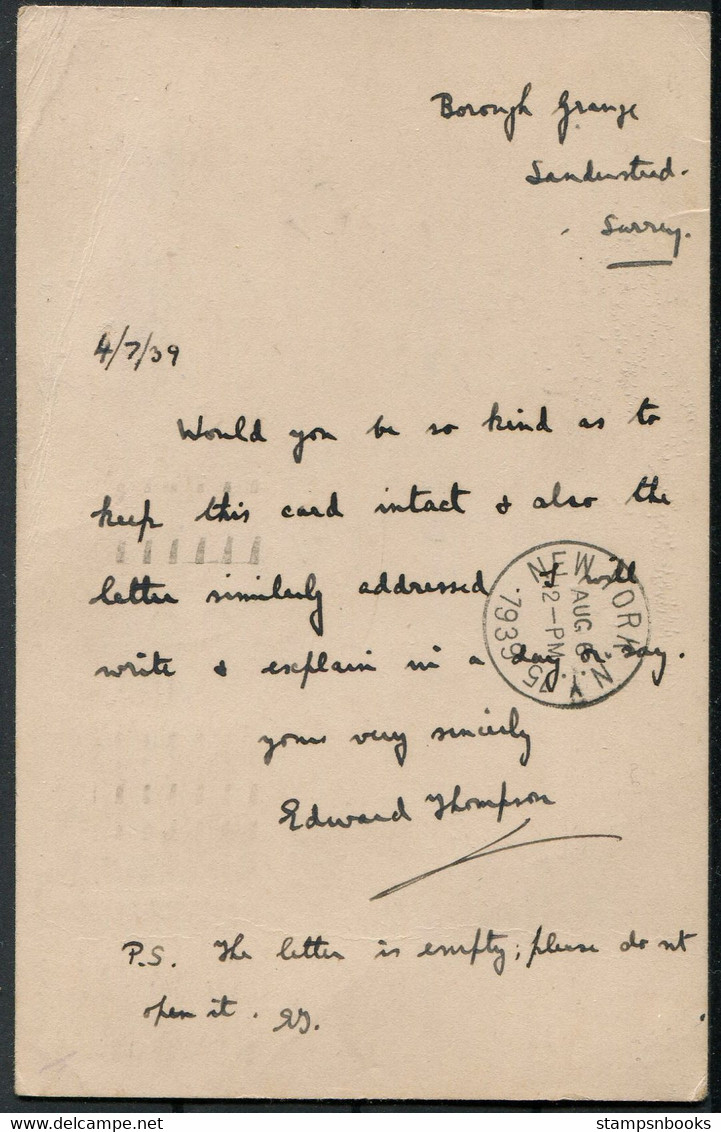 Borough Grange
Sanderstead.
Surrey.
4/7/39
Would you be so kind as to
keep this card intact & also the
letter similarly addressed. I will
write & explain in a day or so.
yours very sincerely
Edward Thompson
P.S. The letter is empty; please do nt
open it. ET.
NEW YORK N.Y.
AUG 6
12-PM
1939
stampsnbooks